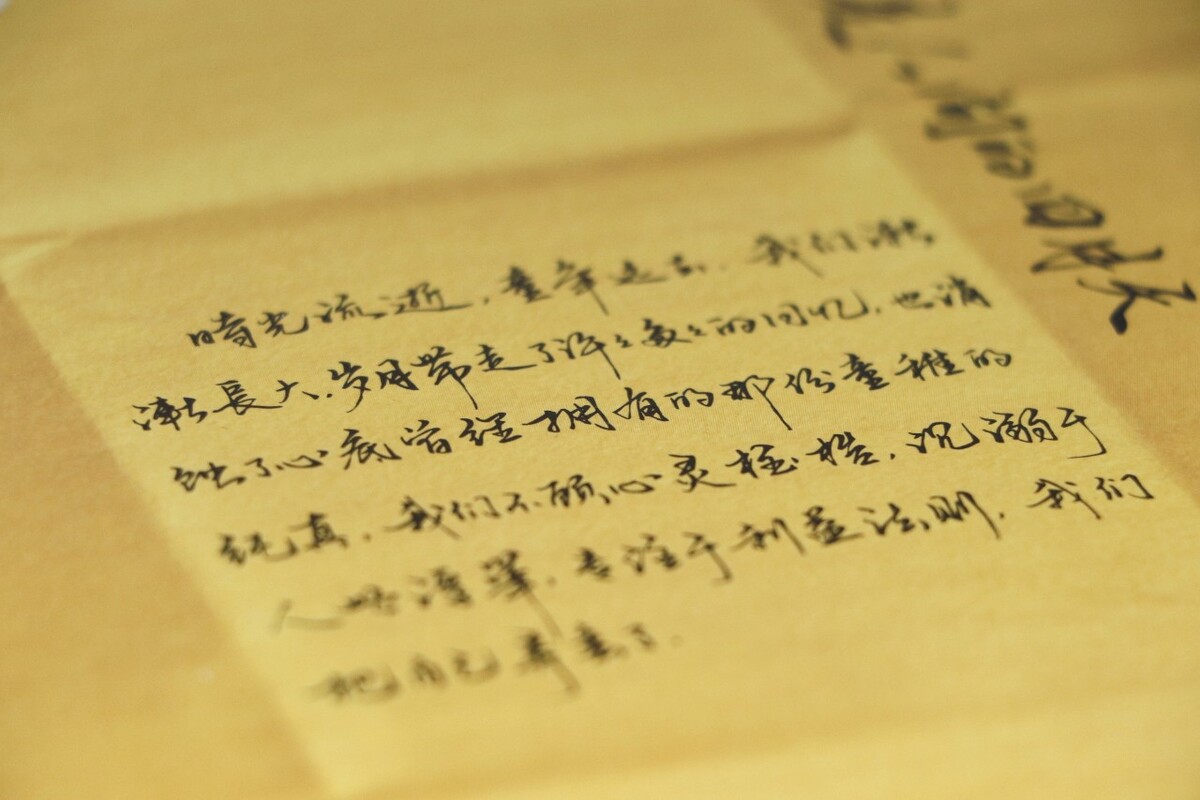 時光流逝，童年远去，我们渐
渐長大，岁月带走了许许多多的回忆，也消
蚀了心底曾经拥有的那份童稚的
纯真，我们不顾心灵桎梏，沉溺于
人世浮華，专注于利益法则，我们
把自己弄丢了。